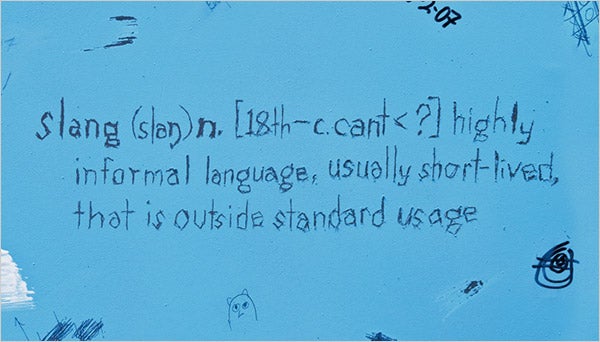 2-07
slang (slaŋ) n. [18th-c. cant < ?] highly
informal language, usually short-lived,
that is outside standard usage